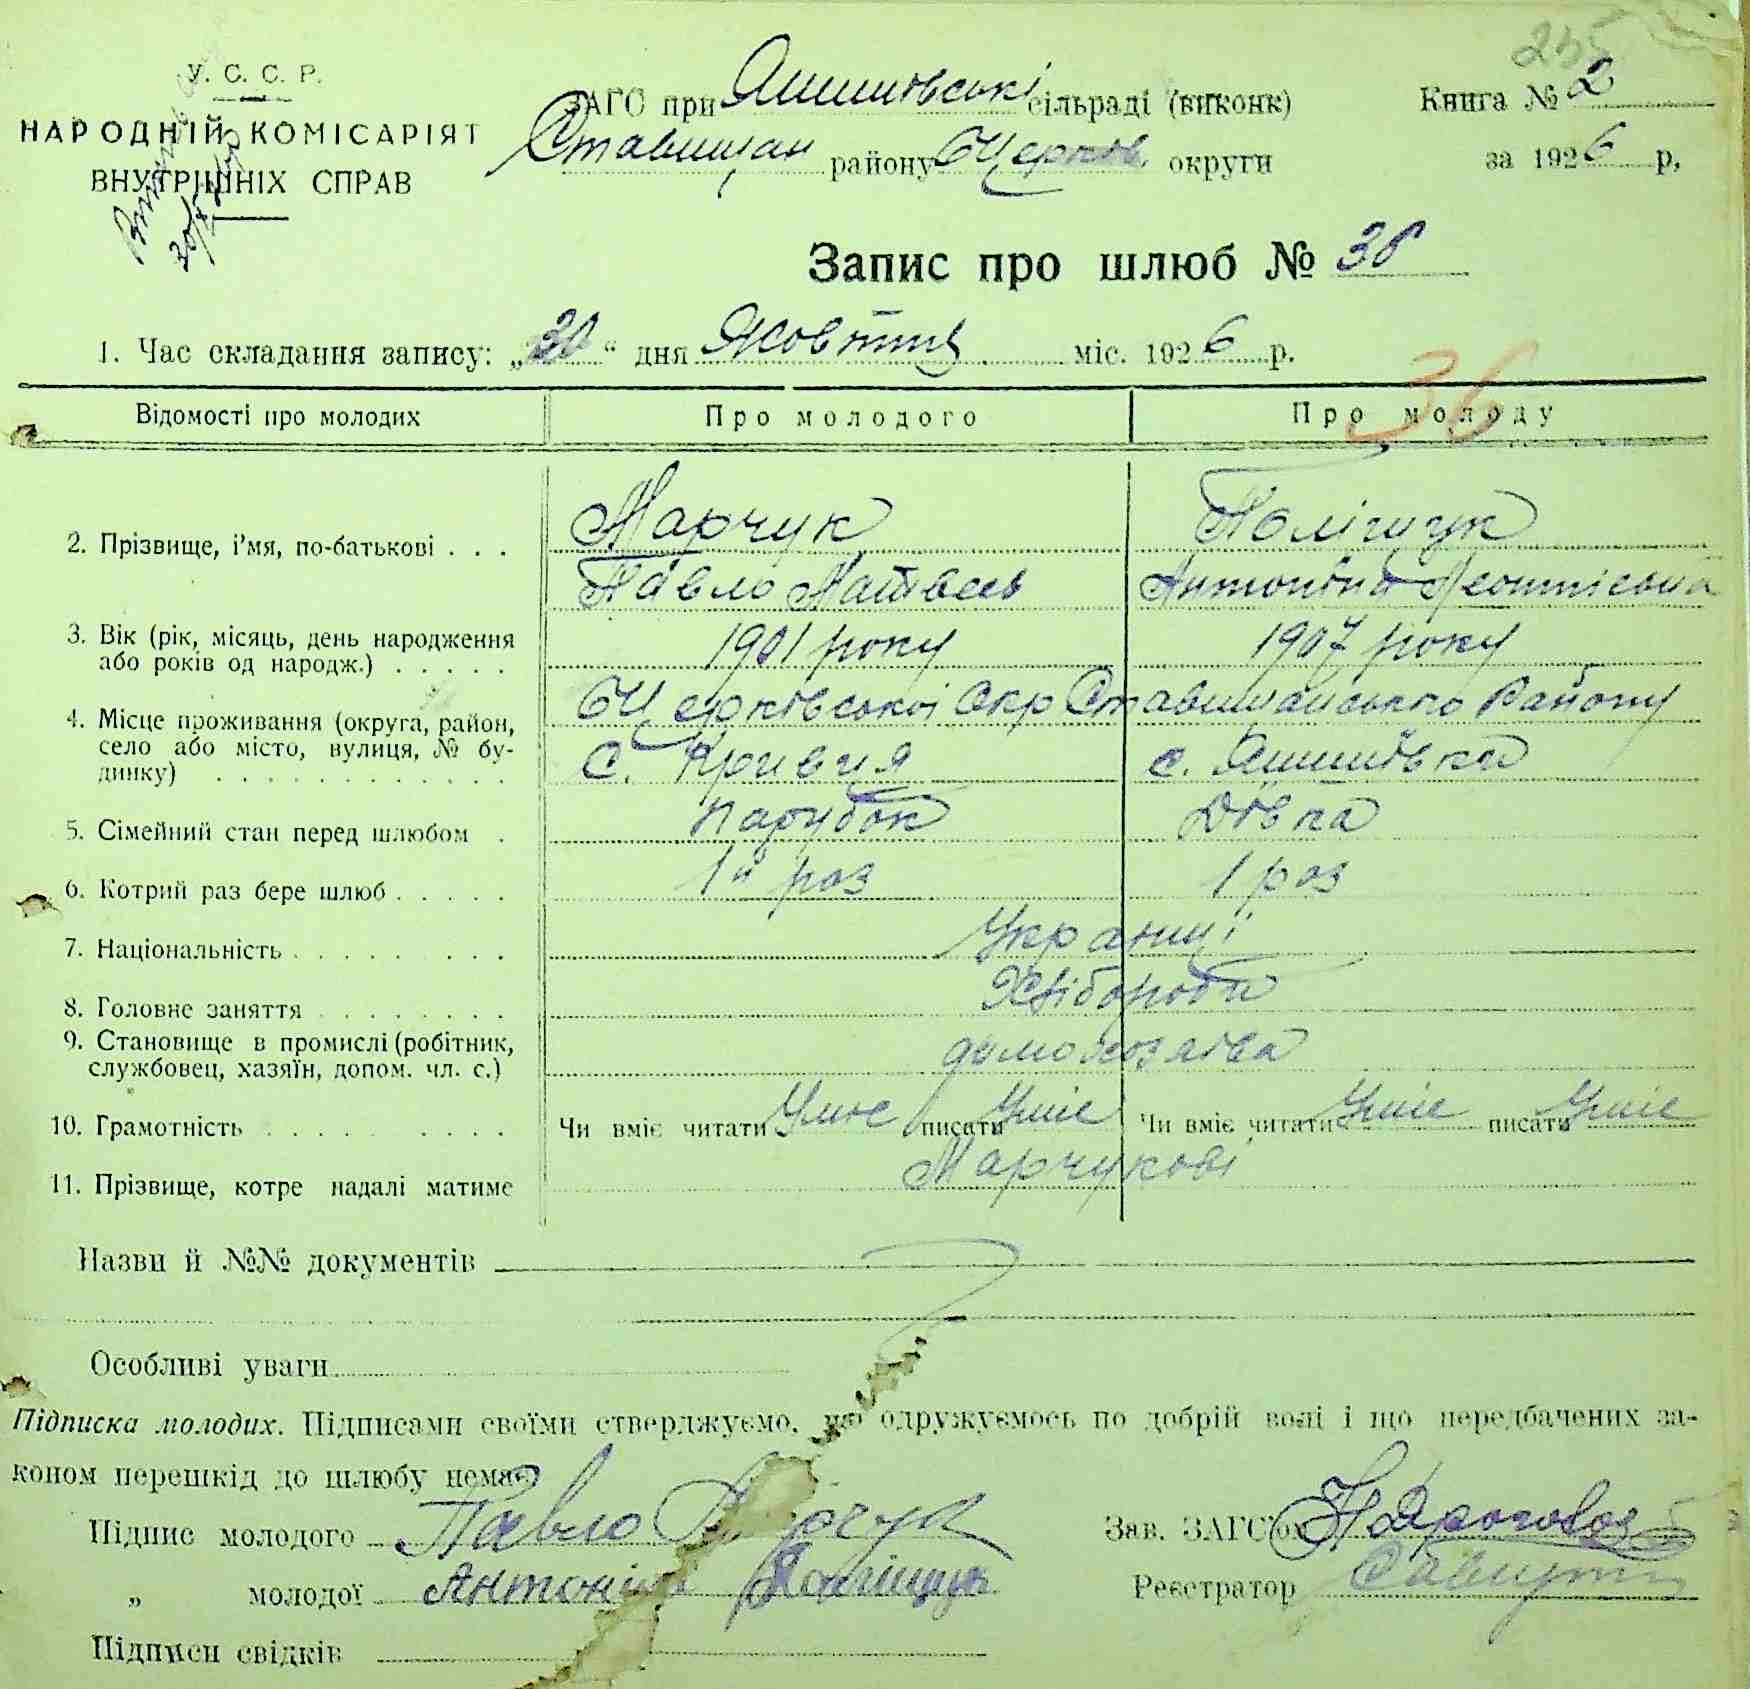 235
У. С. С. Р.
НАРОДНІЙ КОМІСАРІЯТ
ВНУТРІШНІХ СПРАВ
ЗАГС при Яшшовські сільраді (виконк)
Ставищан району БЦерков округи
Книга № 2
за 1926 р.
Запис про шлюб № 36
1. Час складання запису: „30“ дня Жовтня міс. 1926 р.
36
Відомості про молодих Про молодого Про молоду
2. Прізвище, і'мя, по-батькові . . . Марчук Поліщук
Павло Матвеев Антоніна
3. Вік (рік, місяць, день народження
або років од народж.) . . . . . 1901 року 1907 року
4. Місце проживання (округа, район,
село або місто, вулиця, № бу-
динку) . . . . . . . . . . . .
БЦерківської Окр Ставищанського Району
с. Кривця с.
5. Сімейний стан перед шлюбом . парубок Дівка
6. Котрий раз бере шлюб . . . . . 1й раз 1 раз
7. Національність . . . . . . . . . Українці
8. Головне заняття . . . . . . . . Хлібороби
9. Становище в промислі (робітник,
службовец, хазяїн, допом. чл. с.) домохозяїва
10. Грамотність . . . . . . . . . Чи вміє читати Уміє писати Уміє Чи вміє читати Уміє писати Уміє
11. Прізвище, котре надалі матиме Марчукові
Назви й №№ документів
Особливі уваги
Підписка молодих. Підписами своїми стверджуємо, що одружуємось по добрій волі і що передбачених за-
коном перешкід до шлюбу немає
Підпис молодого Павло Марчук Зав. ЗАГС'ом
„ молодої Антоніна Поліщук Реєстратор
Підписи свідків